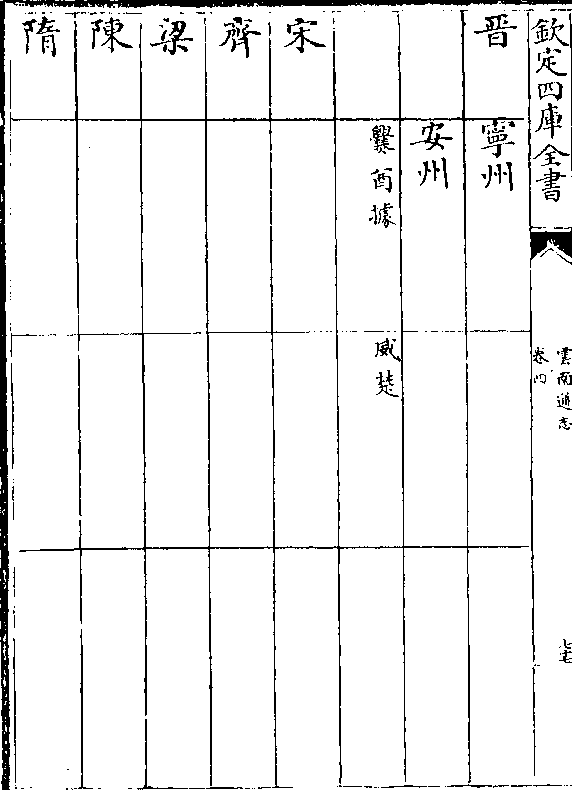 欽定四庫全書
雲南通志
卷四
七十七
晋
寧州
安州
爨酋據
威楚
宋
齊
梁
陳
隋